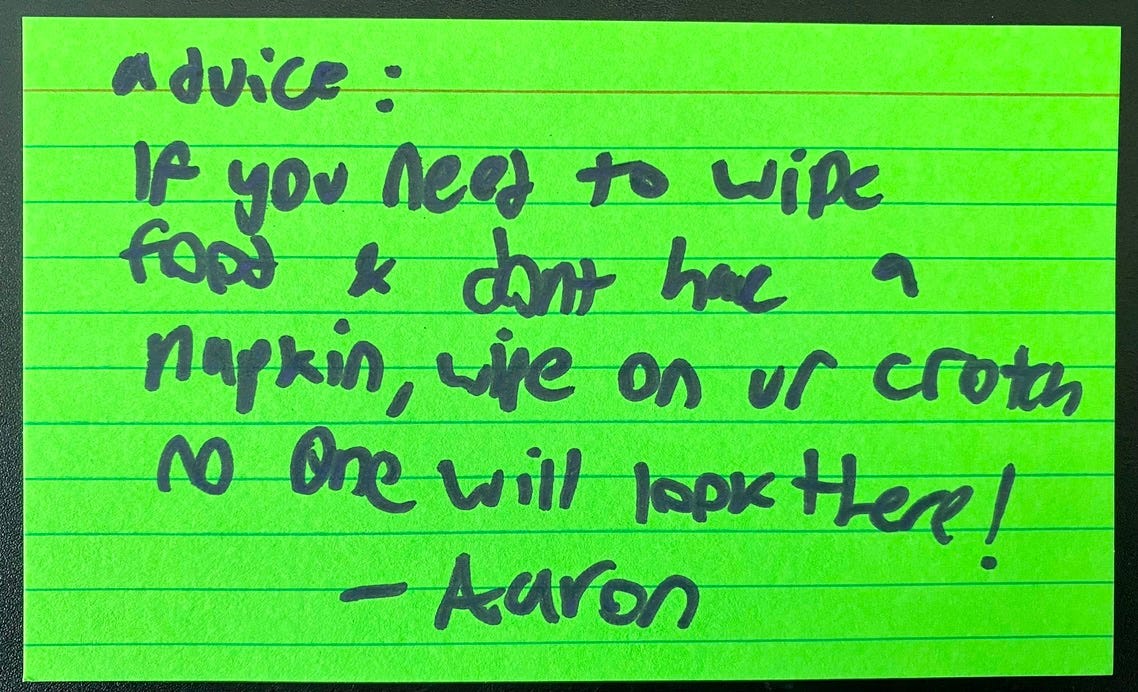 advice:
If you need to wipe
food & dont have a
napkin, wipe on ur crotch
no one will look there!
- Aaron